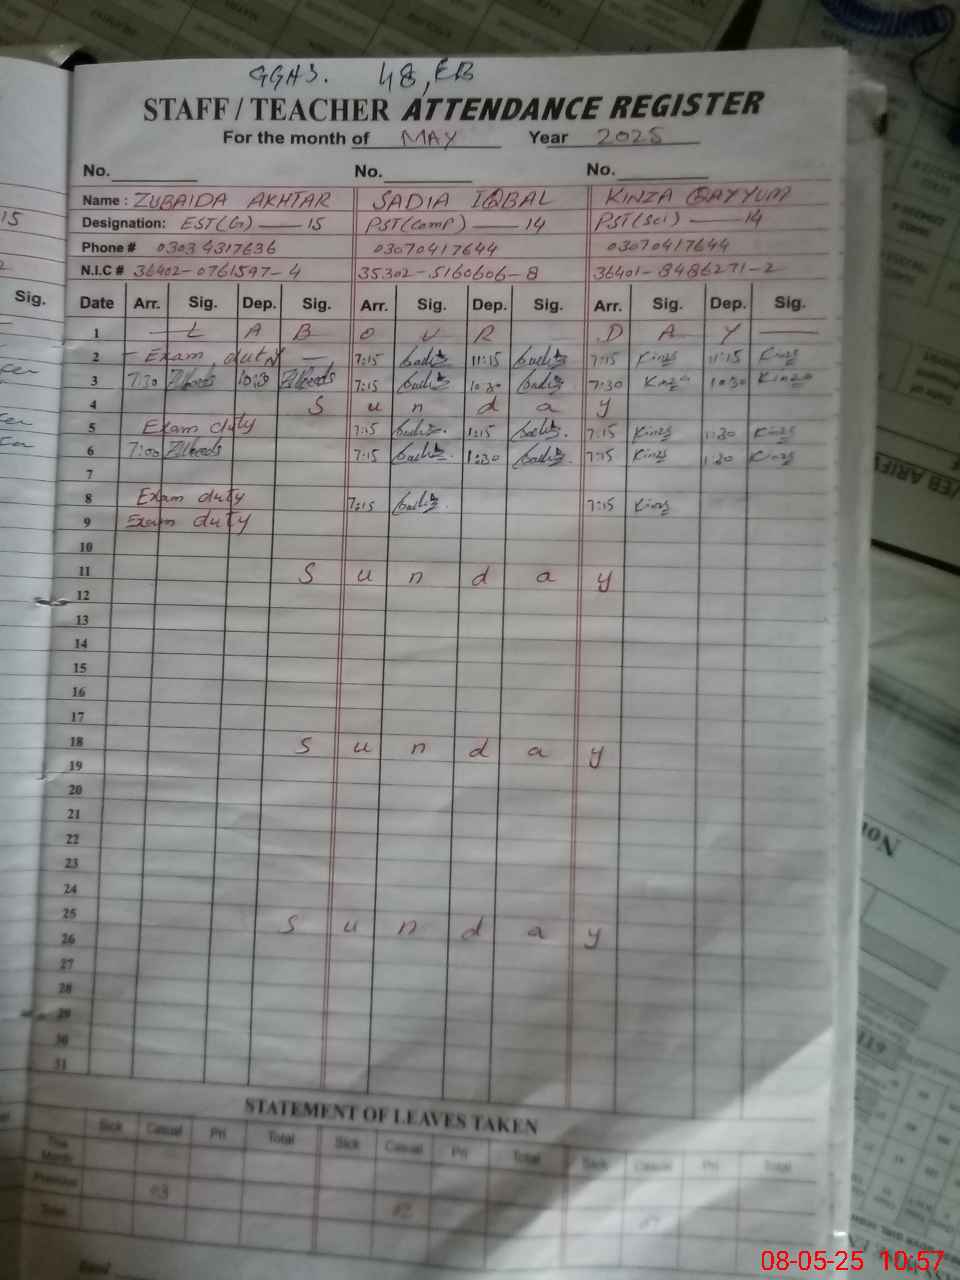 GGHS. 48, EB
STAFF / TEACHER ATTENDANCE REGISTER
For the month of MAY Year 2025
No. No. No.
Name : ZUBAIDA AKHTAR SADIA IQBAL KINZA QAYYUM
Designation: EST(G) — 15 PST(comp) — 14 PST(sci) — 14
Phone # 0303 4317636 03070417644 03070417644
N.I.C # 36402-0761597-4 35302-5160606-8 36401-8486271-2
Sig. Date Arr. Sig. Dep. Sig. Arr. Sig. Dep. Sig. Arr. Sig. Dep. Sig.
1 — L A B O U R D A Y —
2 – Exam duty – 7:15 11:15 7:15 Kinza 11:15 Kinza
3 7:30 10:30 7:15 10:30 7:30 Kinza 10:30 Kinza
4 S u n d a y
5 Exam duty 7:15 1:15 7:15 Kinza 1:30 Kinza
6 7:00 7:15 1:30 7:15 Kinza 1:30 Kinza
7
8 Exam duty 7:15 7:15 Kinza
9 Exam duty
10
11 S u n d a y
12
13
14
15
16
17
18 S u n d a y
19
20
21
22
23
24
25 S u n d a y
26
27
28
29
30
31
STATEMENT OF LEAVES TAKEN
Sick Casual Pri Total Sick Casual Pri Total Sick Casual Pri Total
This Month
Previous 03
Total
08-05-25 10:57